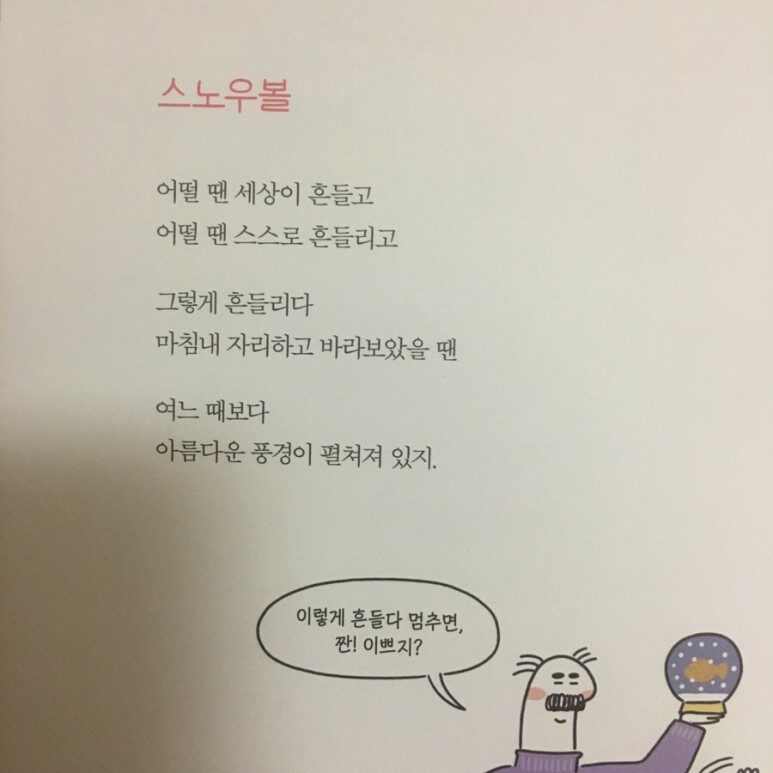 스노우볼
어떨 땐 세상이 흔들고
어떨 땐 스스로 흔들리고
그렇게 흔들리다
마침내 자리하고 바라보았을 땐
여느 때보다
아름다운 풍경이 펼쳐져 있지.
이렇게 흔들다 멈추면,
짠! 이쁘지?